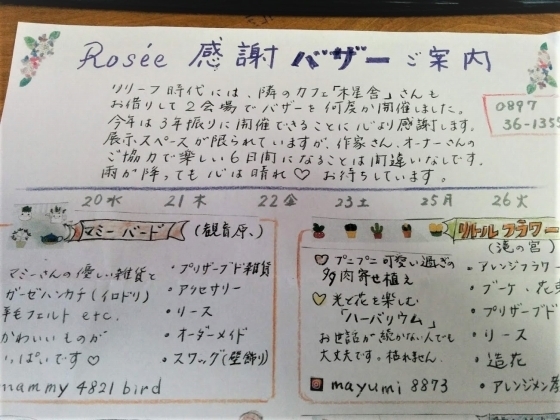 Rosée 感謝バザーご案内
リリーフ時代には、隣のカフェ「木星舎」さんも
お借りして2会場でバザーを何度か開催しました。
今年は3年振りに開催できることに心より感謝します。
展示スペースが限られていますが、作家さん、オーナーさんの
ご協力で楽しい6日間になることは間違いなしです。
雨が降っても心は晴れ♡ お待ちしています。
0897
36-1355
20水 21木 22金 23土 25月 26火
マミーバード (観音原、)
マミーさんの優しい雑貨と
ガーゼハンカチ(イロドリ)
羊毛フェルト etc.
かわいいものが
いっぱいです♡
mammy 4821 bird
・プリザーブド雑貨
・アクセサリー
・リース
・オーダーメイド
・スワッグ(壁飾り)
リトルフラワー
(滝の宮
♡プニプニ可愛い過ぎの
多肉寄せ植え
♡光と花を楽しむ
「ハーバリウム」
お世話が続かない人でも
大丈夫です。枯れません。
mayumi 8873
・アレンジフラワー
・ブーケ、花束
・プリザーブド
・リース
・造花
・アレンジメン